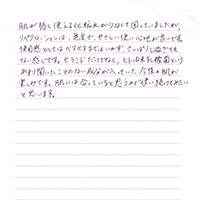 肌が弱く使える化粧水が少なくて困っていましたが、
リペアローションは、無臭で、やさしい使い心地が良いです。
使用感としてはべたべたするはいれず、さっぱりしすぎても
ない感じです。セラミドだけでなく、ヒト由来乳酸菌という
あまり聞いたことのない成分が入っていて、今後の肌が
楽しみです。肌には合っていると思うので使い続けてみたい
と思います。